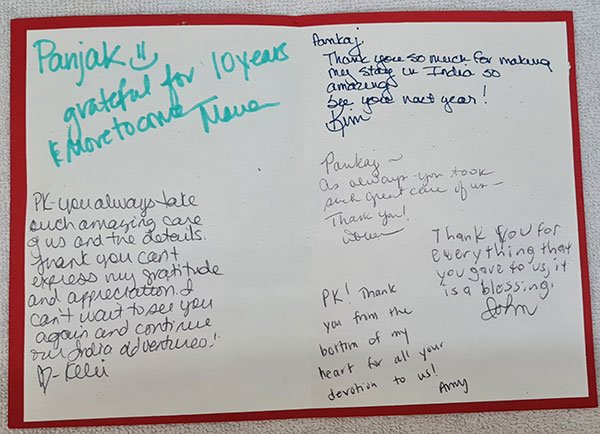 Panjak
grateful for 10 years
& More to come
PK - you always take
such amazing care
of us and the details.
Thank you can't
express my gratitude
and appreciation. I
can't want to see you
again and continue
our India adventures!
Pankaj
Thank you so much for making
my stay in India so
amazing
See you next year!
Kim
Pankaj ~
as always you took
such great care of us -
Thank you!
Thank you for
everything that
you gave to us, it
is a blessing.
John
PK! Thank
you from the
bottom of my
heart for all your
devotion to us!
Amy